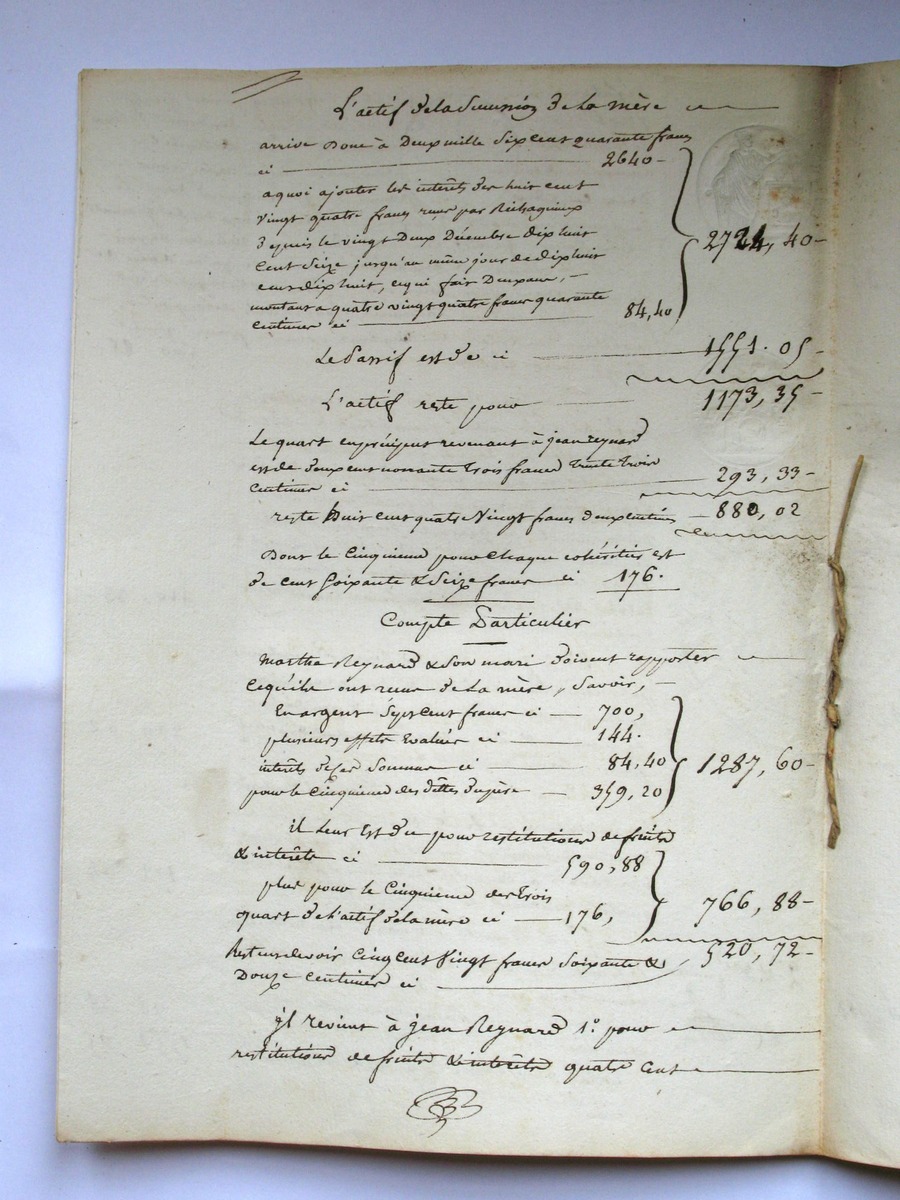 L'actif de la Succession de La mère
arrive Donc à Deux mille Six cent quarante francs
ci 2640
a quoi ajouter les intérêts des huit cent
vingt quatre francs reçus par
Depuis le vingt Deux Décembre dix huit
Cent Seize jusqu'au même jour de dix huit
cent dix huit, ce qui fait Deux ans,
montant a quatre vingt quatre francs quarante
Centimes ci 84,40
2724,40
Le Passif est de ci 1551.05
L'actif reste pour 1173,35
Le quart en préciput revenant à jean reynard
est de deux cent nonante trois francs trente trois
Centimes ci 293,33
reste huit cent quatre Vingt francs deux centimes 880,02
Dont le Cinquieme pour Chaque cohéritier est
de Cent Soixante & Seize francs ci 176.
Compte Particulier
Marthe Reynard & Son mari doivent rapporter
ce qu'ils ont reçu de La mère, Savoir,
En argent Sept Cent francs ci 700,
plusieurs effets Evalués ci 144.
intérêts de ces Sommes ci 84,40
1287,60
pour le Cinquieme des dettes du père 359,20
il Leur Est Du pour restitutions de fruits
& intérêts ci 590,88
plus pour le Cinquieme des trois
quart de l'actif de la mère ci 176,
766,88
Restent devoir Cinq Cent Vingt francs Soixante &
Douze Centimes ci 520,72
jl revient à jean Reynard 1.o pour
restitutions de fruits & intérêts quatre Cent